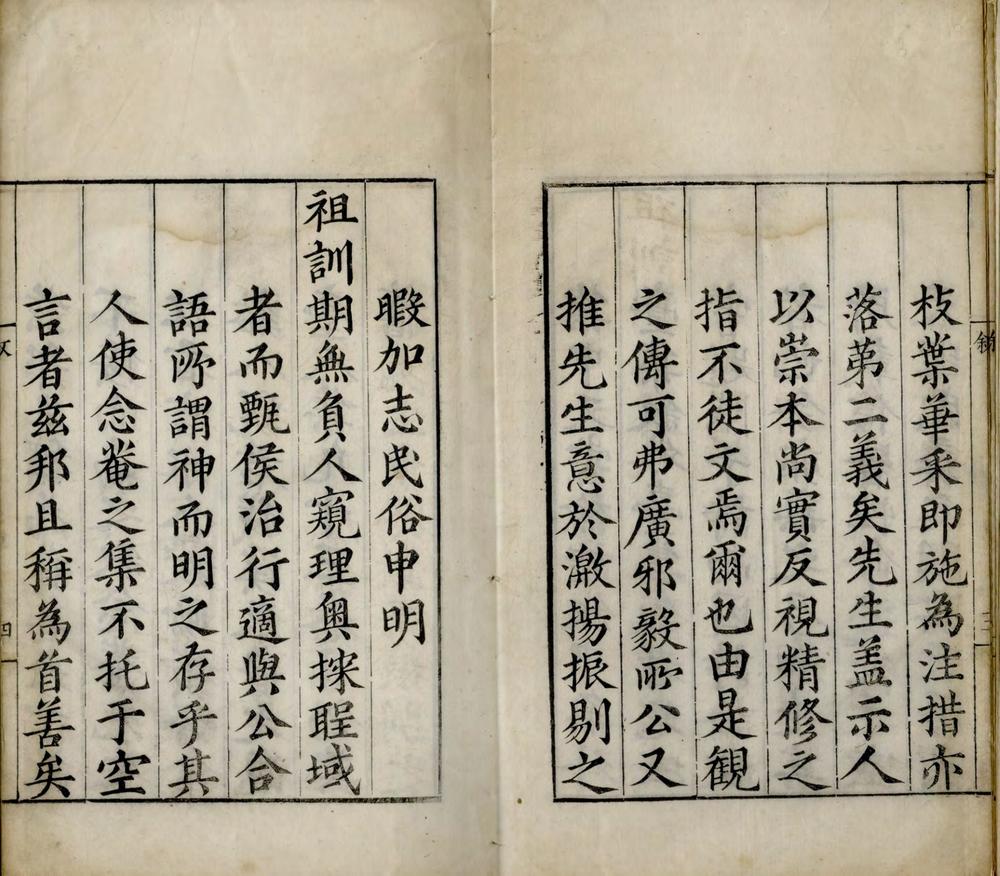 枝葉華采即施為注措亦
落苐二義矣先生盖示人
以崇本尚實反視精修之
指不徒文焉爾也由是観
之傳可弗廣邪毅所公又
推先生意於激揚振剔之
暇加志民俗申明
祖訓期無負人窺理奥探聖域
者而甄侯治行適與公合
語所謂神而明之存乎其
人使念菴之集不托于空
言者兹邦且稱為首善矣
四